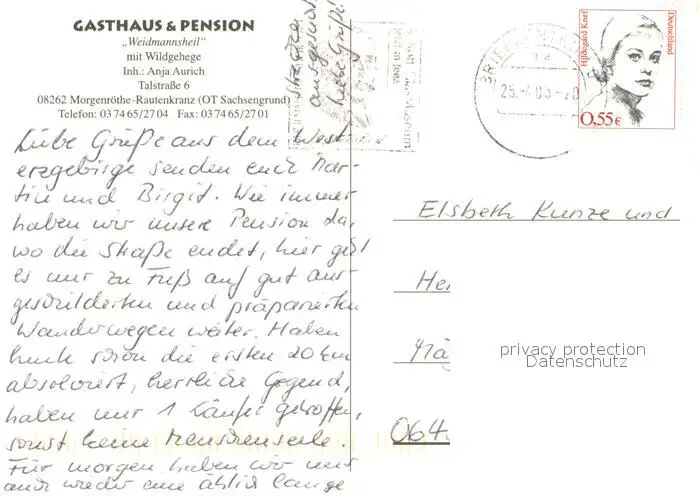 GASTHAUS & PENSION
„Weidmannsheil"
mit Wildgehege
Inh.: Anja Aurich
Talstraße 6
08262 Morgenröthe-Rautenkranz (OT Sachsengrund)
Telefon: 03 74 65/27 04 Fax: 03 74 65/27 01
Liebe Grüße aus dem West
erzgebirge senden euch Mar-
tin und Birgit. Wie immer
haben wir unsere Pension da,
wo die Straße endet, hier geht
es nur zu Fuß auf gut aus-
geschilderten und präparierten
Wanderwegen weiter. Haben
heute schon die ersten 20 km
absolviert, herrliche Gegend,
haben nur 1 Läufer getroffen,
sonst keine Menschenseele.
Für morgen haben wir uns
auch wieder eine ählich lange
Strecke
ausgesucht
Liebe Grüße
BRIEFZENTRUM
Hildegard Knef
Deutschland
0,55€
Elsbeth Kunze und
He
privacy protection
Datenschutz
064